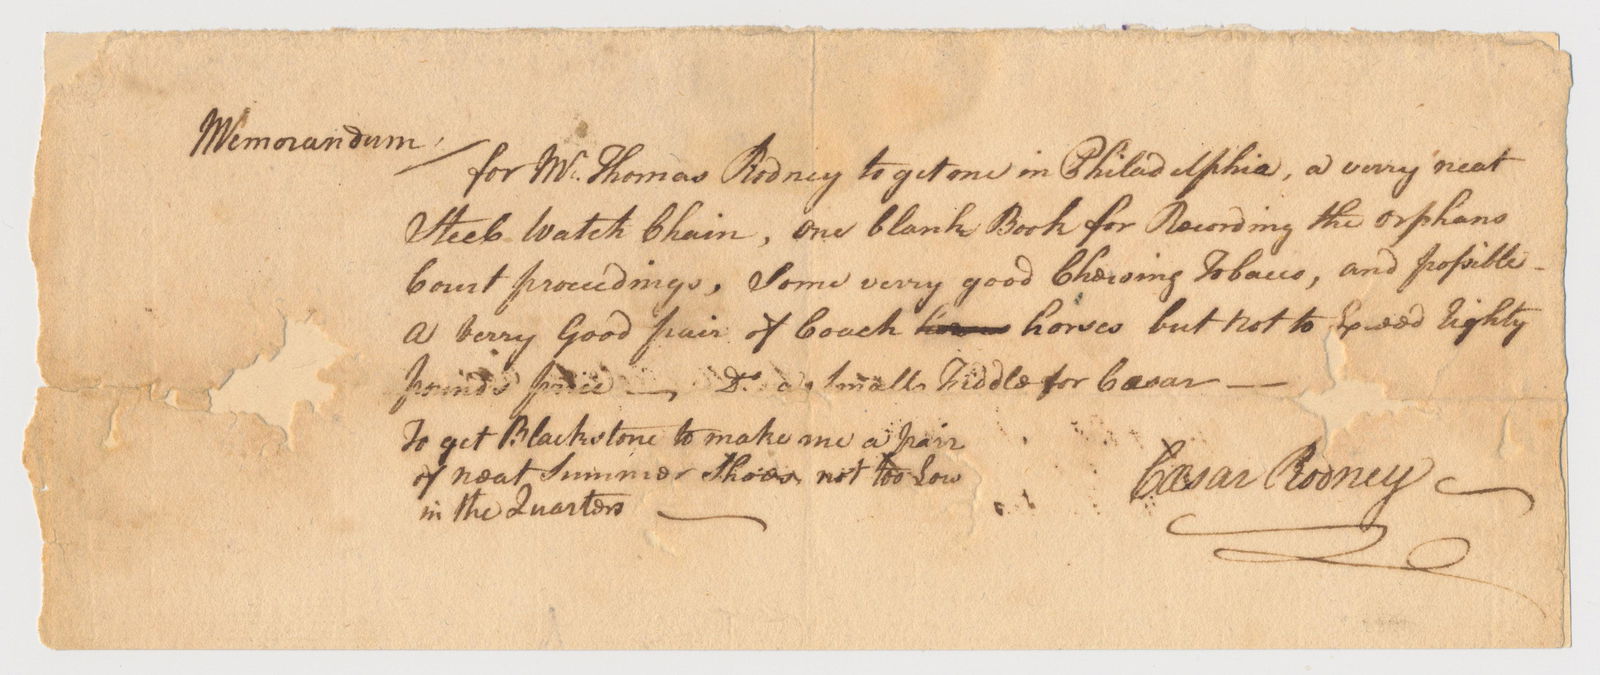 Memorandum,
for Mr. Thomas Rodney to get one in Philadelphia, a verry neat
Steel Watch Chain, one blank Book for Recording the Orphans
Court proceedings, Some verry good Chewing Tobacco, and possible
a verry Good pair of Coach horses but not to Exceed Eighty
pounds price — Do. a small Fiddle for Caesar —
To get Blackstone to make me a pair
of neat Summer Shoes not too Low
in the Quarters —
Caesar Rodney